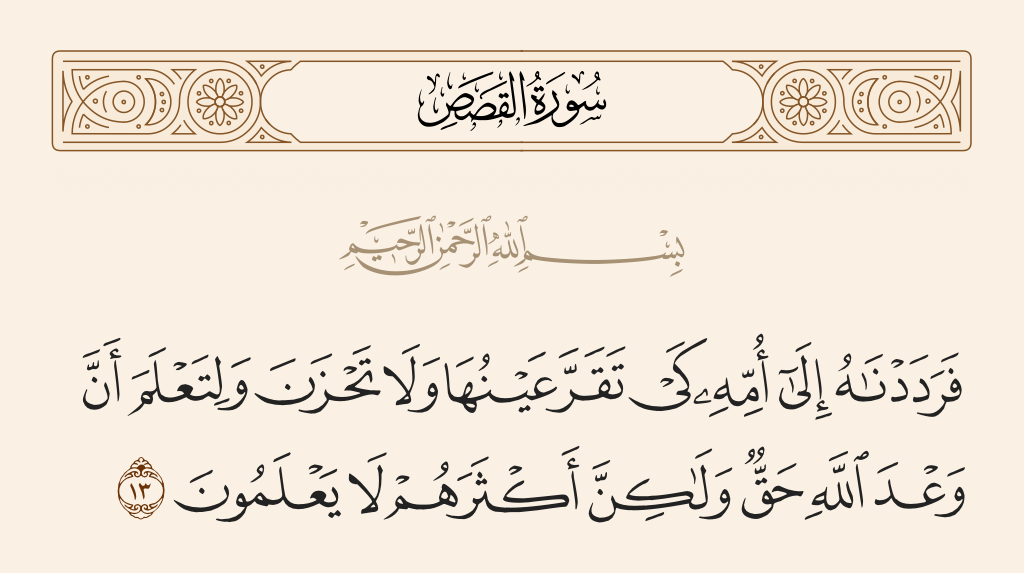 سُورَةُ القَصَصِ
بِسْمِ ٱللَّهِ ٱلرَّحْمَٰنِ ٱلرَّحِيمِ
فَرَدَدْنَٰهُ إِلَىٰٓ أُمِّهِۦ كَىْ تَقَرَّ عَيْنُهَا وَلَا تَحْزَنَ وَلِتَعْلَمَ أَنَّ
وَعْدَ ٱللَّهِ حَقٌّ وَلَٰكِنَّ أَكْثَرَهُمْ لَا يَعْلَمُونَ ١٣